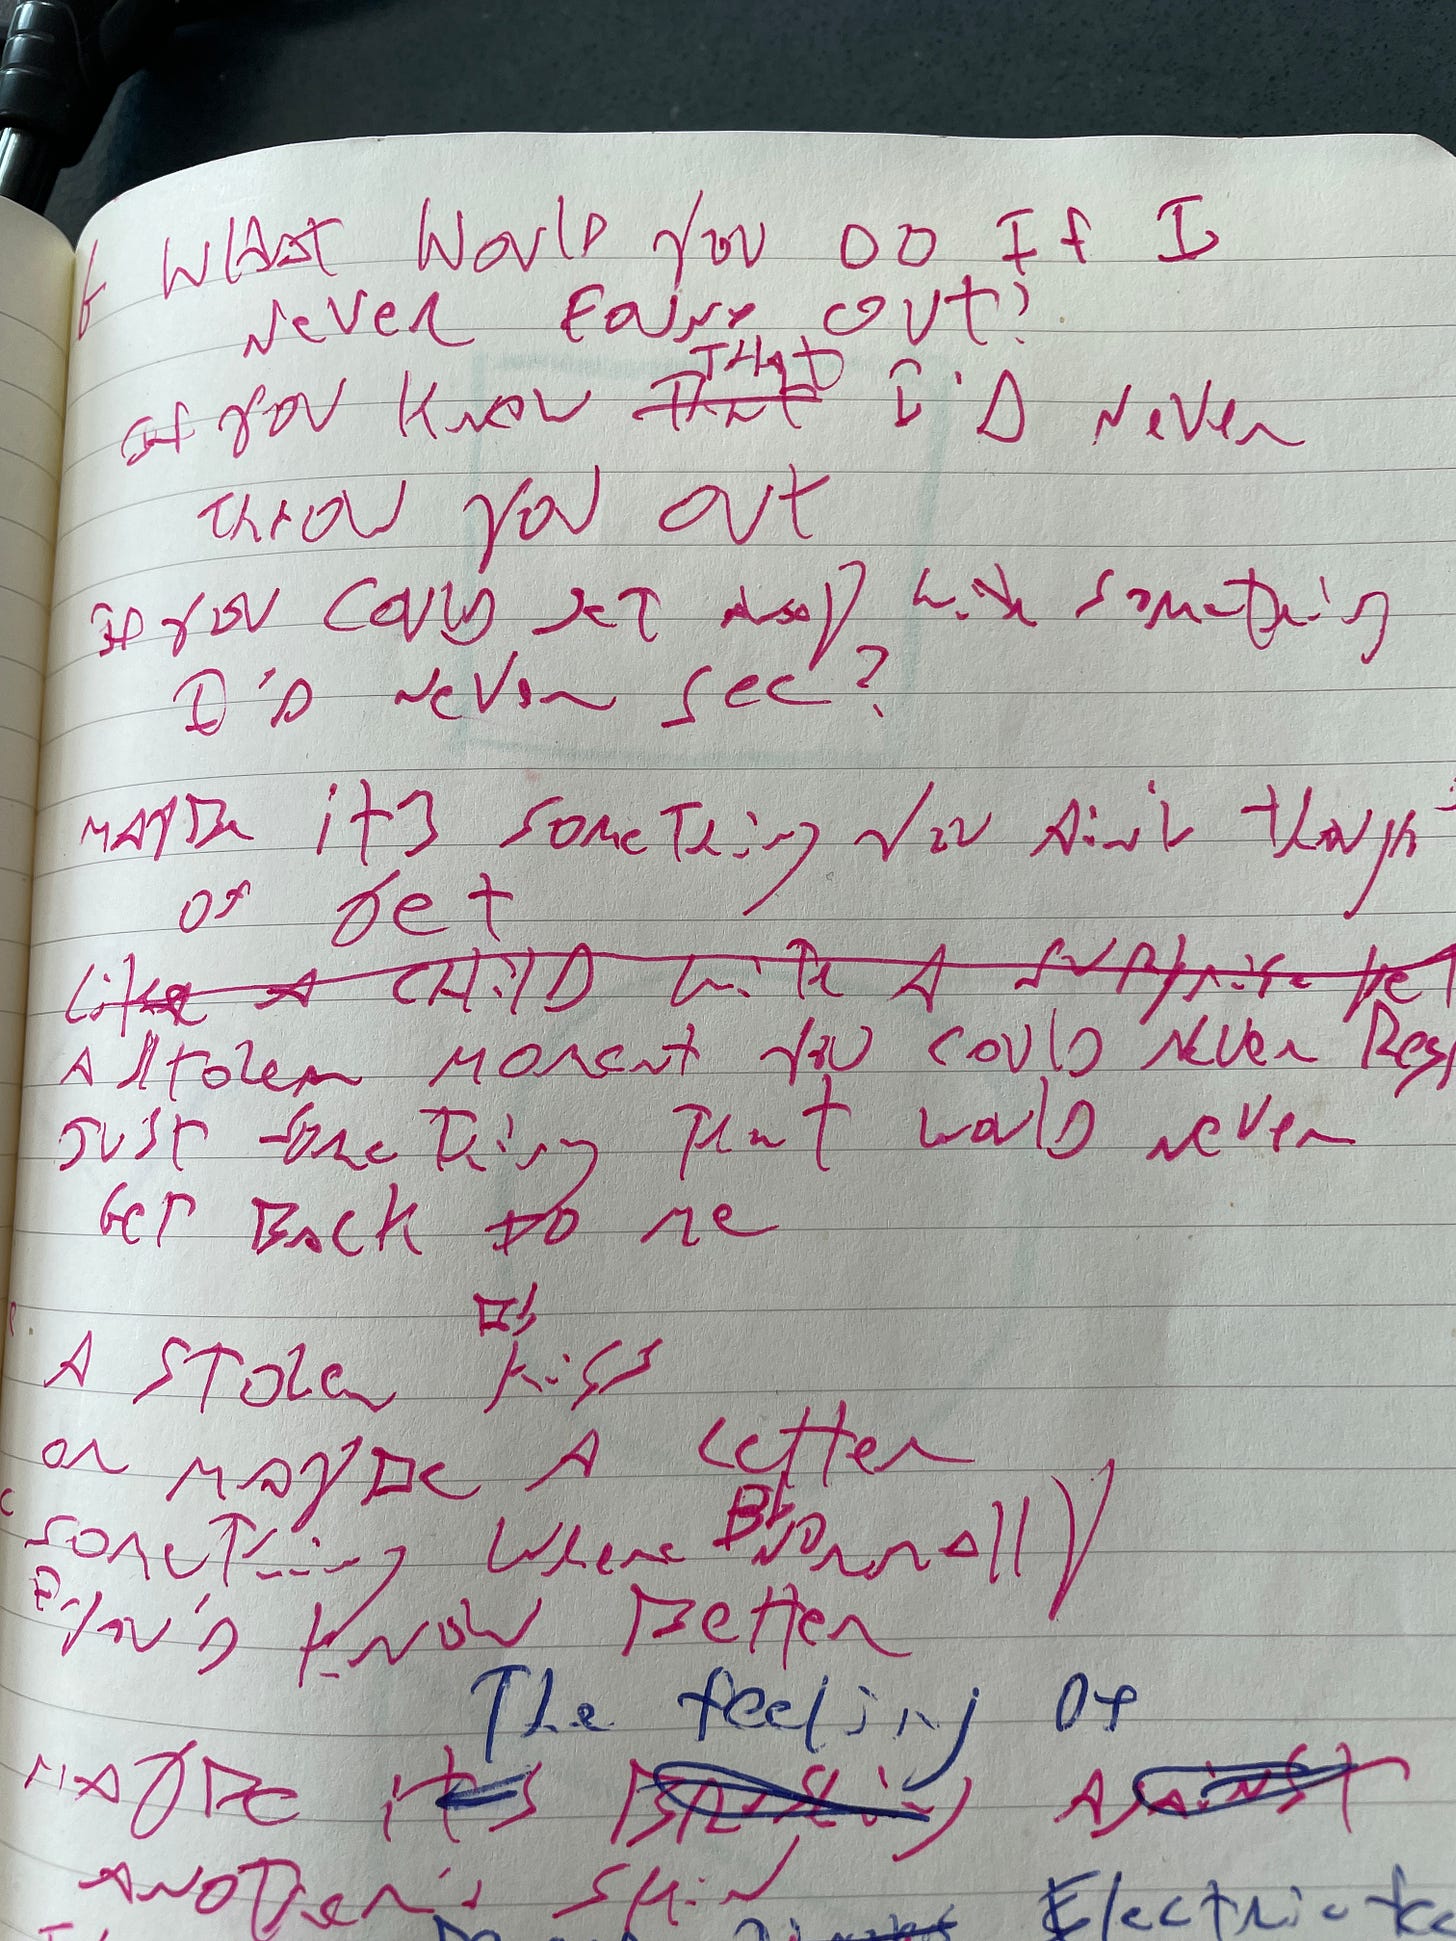 What would you do if I
never found out?
THAT
If you know that I'D never
throw you out
If you could get away with something
I'D never see?
Maybe it's something you ain't though
of yet
Like A CHilD with A surprise pet
A stolen moment you could never
Just something that would never
Get Back to me
A stolen kiss
or maybe A letter
something where normally
you'd know Better
The feeling of
Maybe it's Brushing Against
Another's skin
Electric